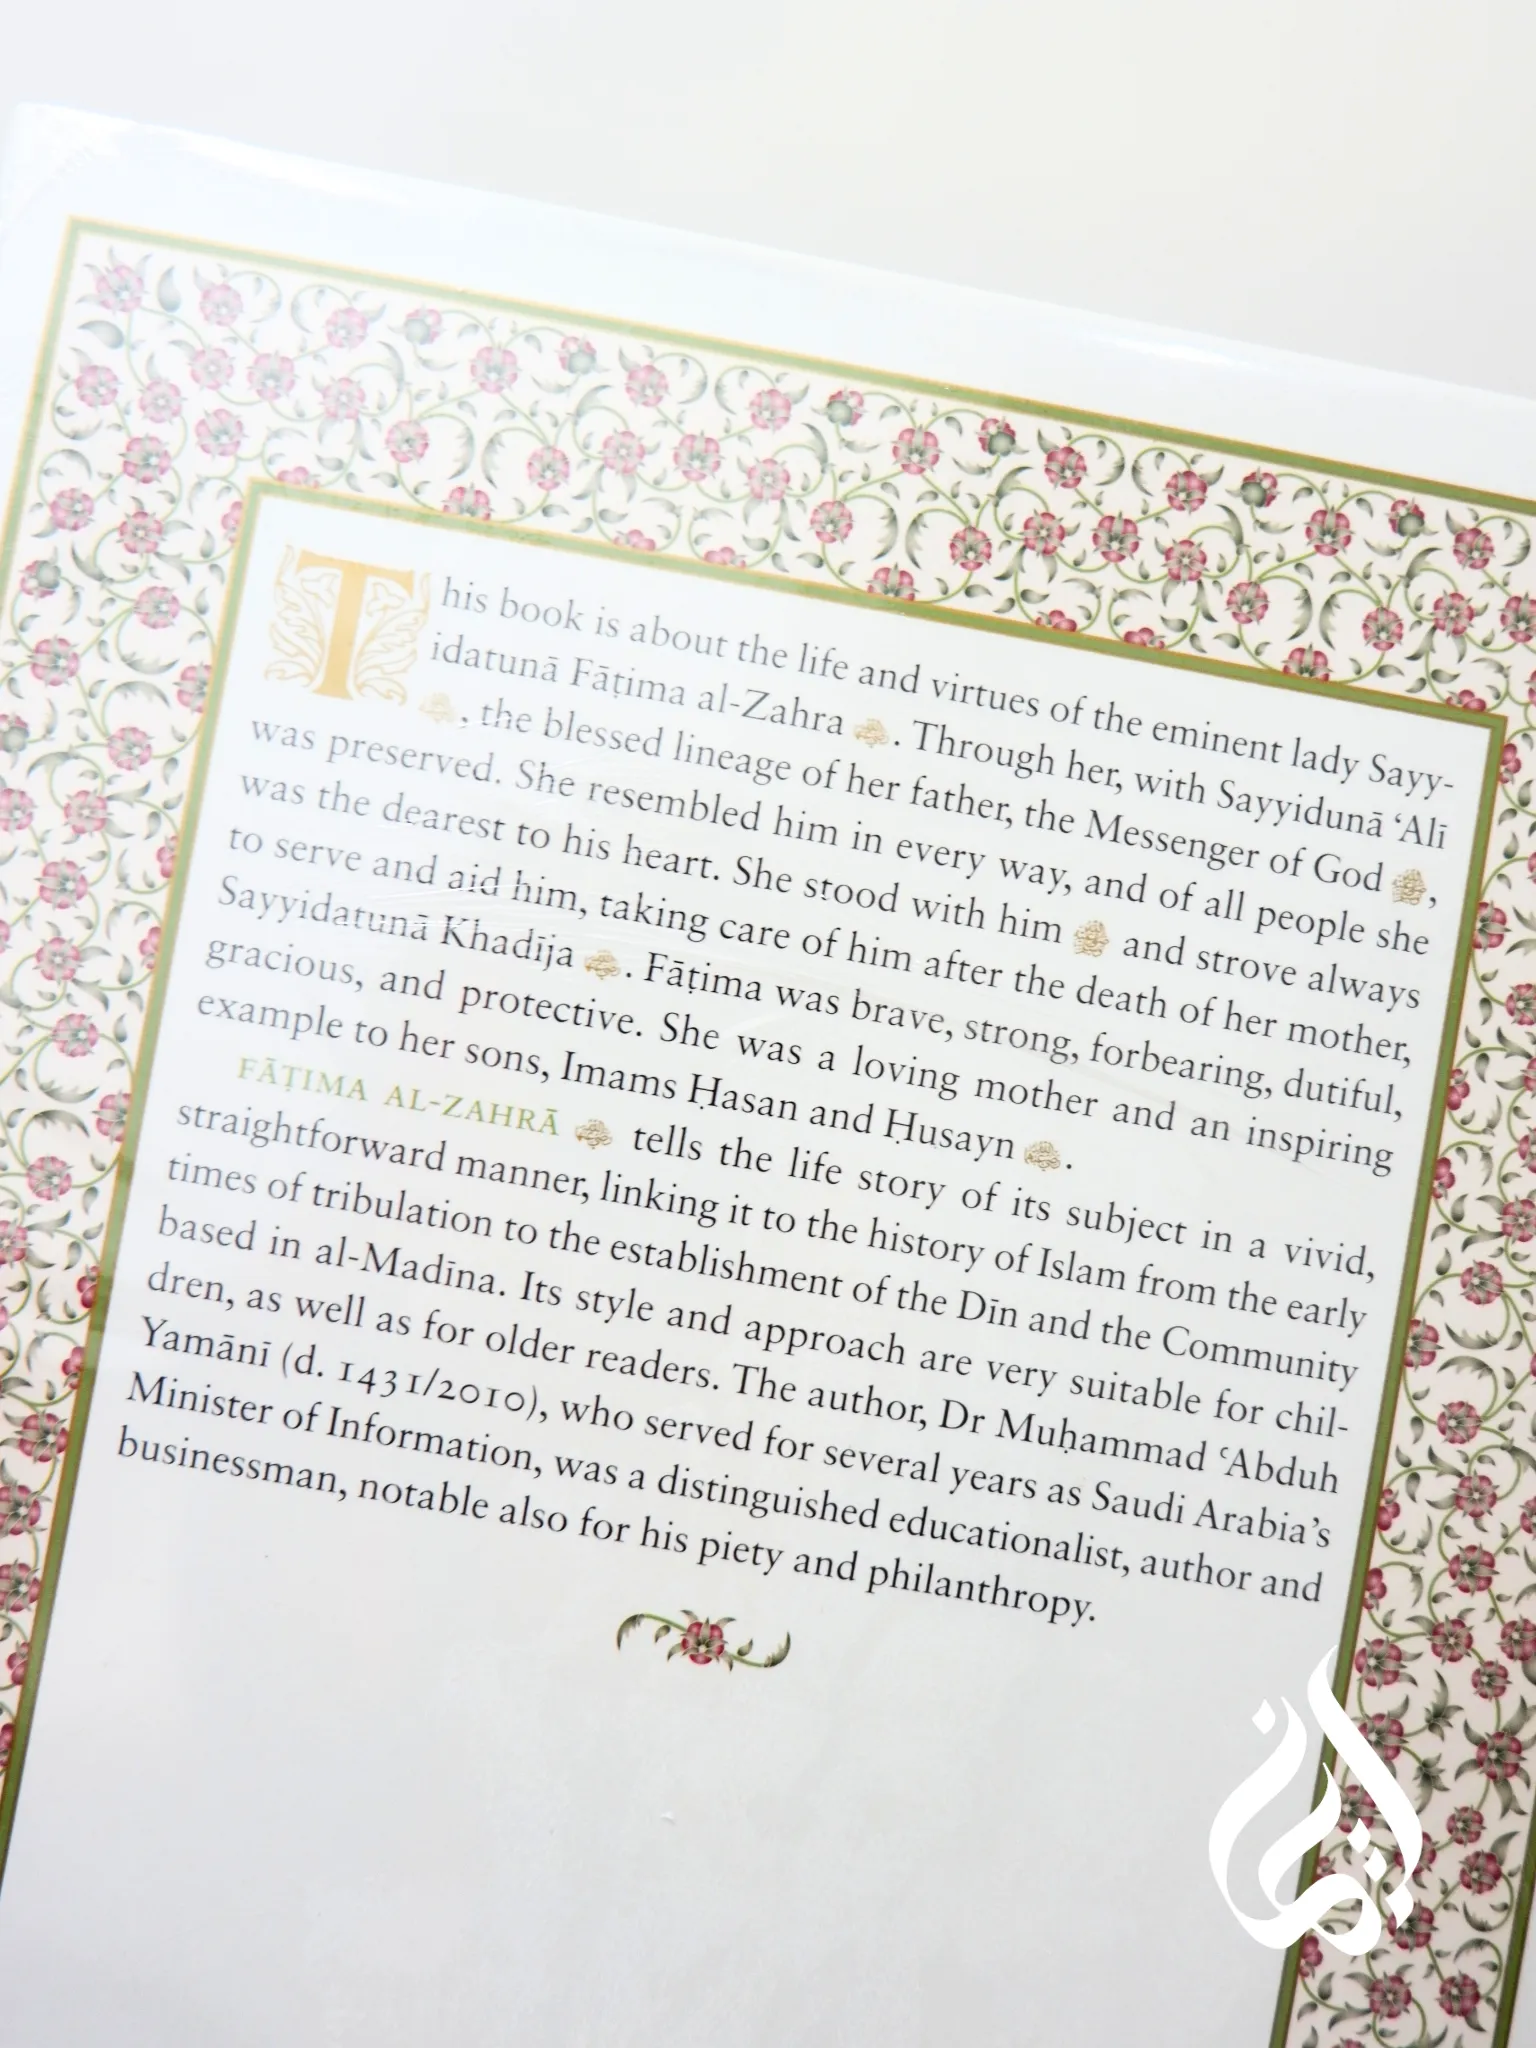 This book is about the life and virtues of the eminent lady Sayy-
idatunā Fāṭima al-Zahra . Through her, with Sayyidunā ‘Alī
, the blessed lineage of her father, the Messenger of God ﷺ,
was preserved. She resembled him in every way, and of all people she
was the dearest to his heart. She stood with him ﷺ and strove always
to serve and aid him, taking care of him after the death of her mother,
Sayyidatunā Khadīja . Fāṭima was brave, strong, forbearing, dutiful,
gracious, and protective. She was a loving mother and an inspiring
example to her sons, Imams Ḥasan and Ḥusayn .
FĀṬIMA AL-ZAHRĀ tells the life story of its subject in a vivid,
straightforward manner, linking it to the history of Islam from the early
times of tribulation to the establishment of the Dīn and the Community
based in al-Madīna. Its style and approach are very suitable for chil-
dren, as well as for older readers. The author, Dr Muḥammad ‘Abduh
Yamānī (d. 1431/2010), who served for several years as Saudi Arabia’s
Minister of Information, was a distinguished educationalist, author and
businessman, notable also for his piety and philanthropy.